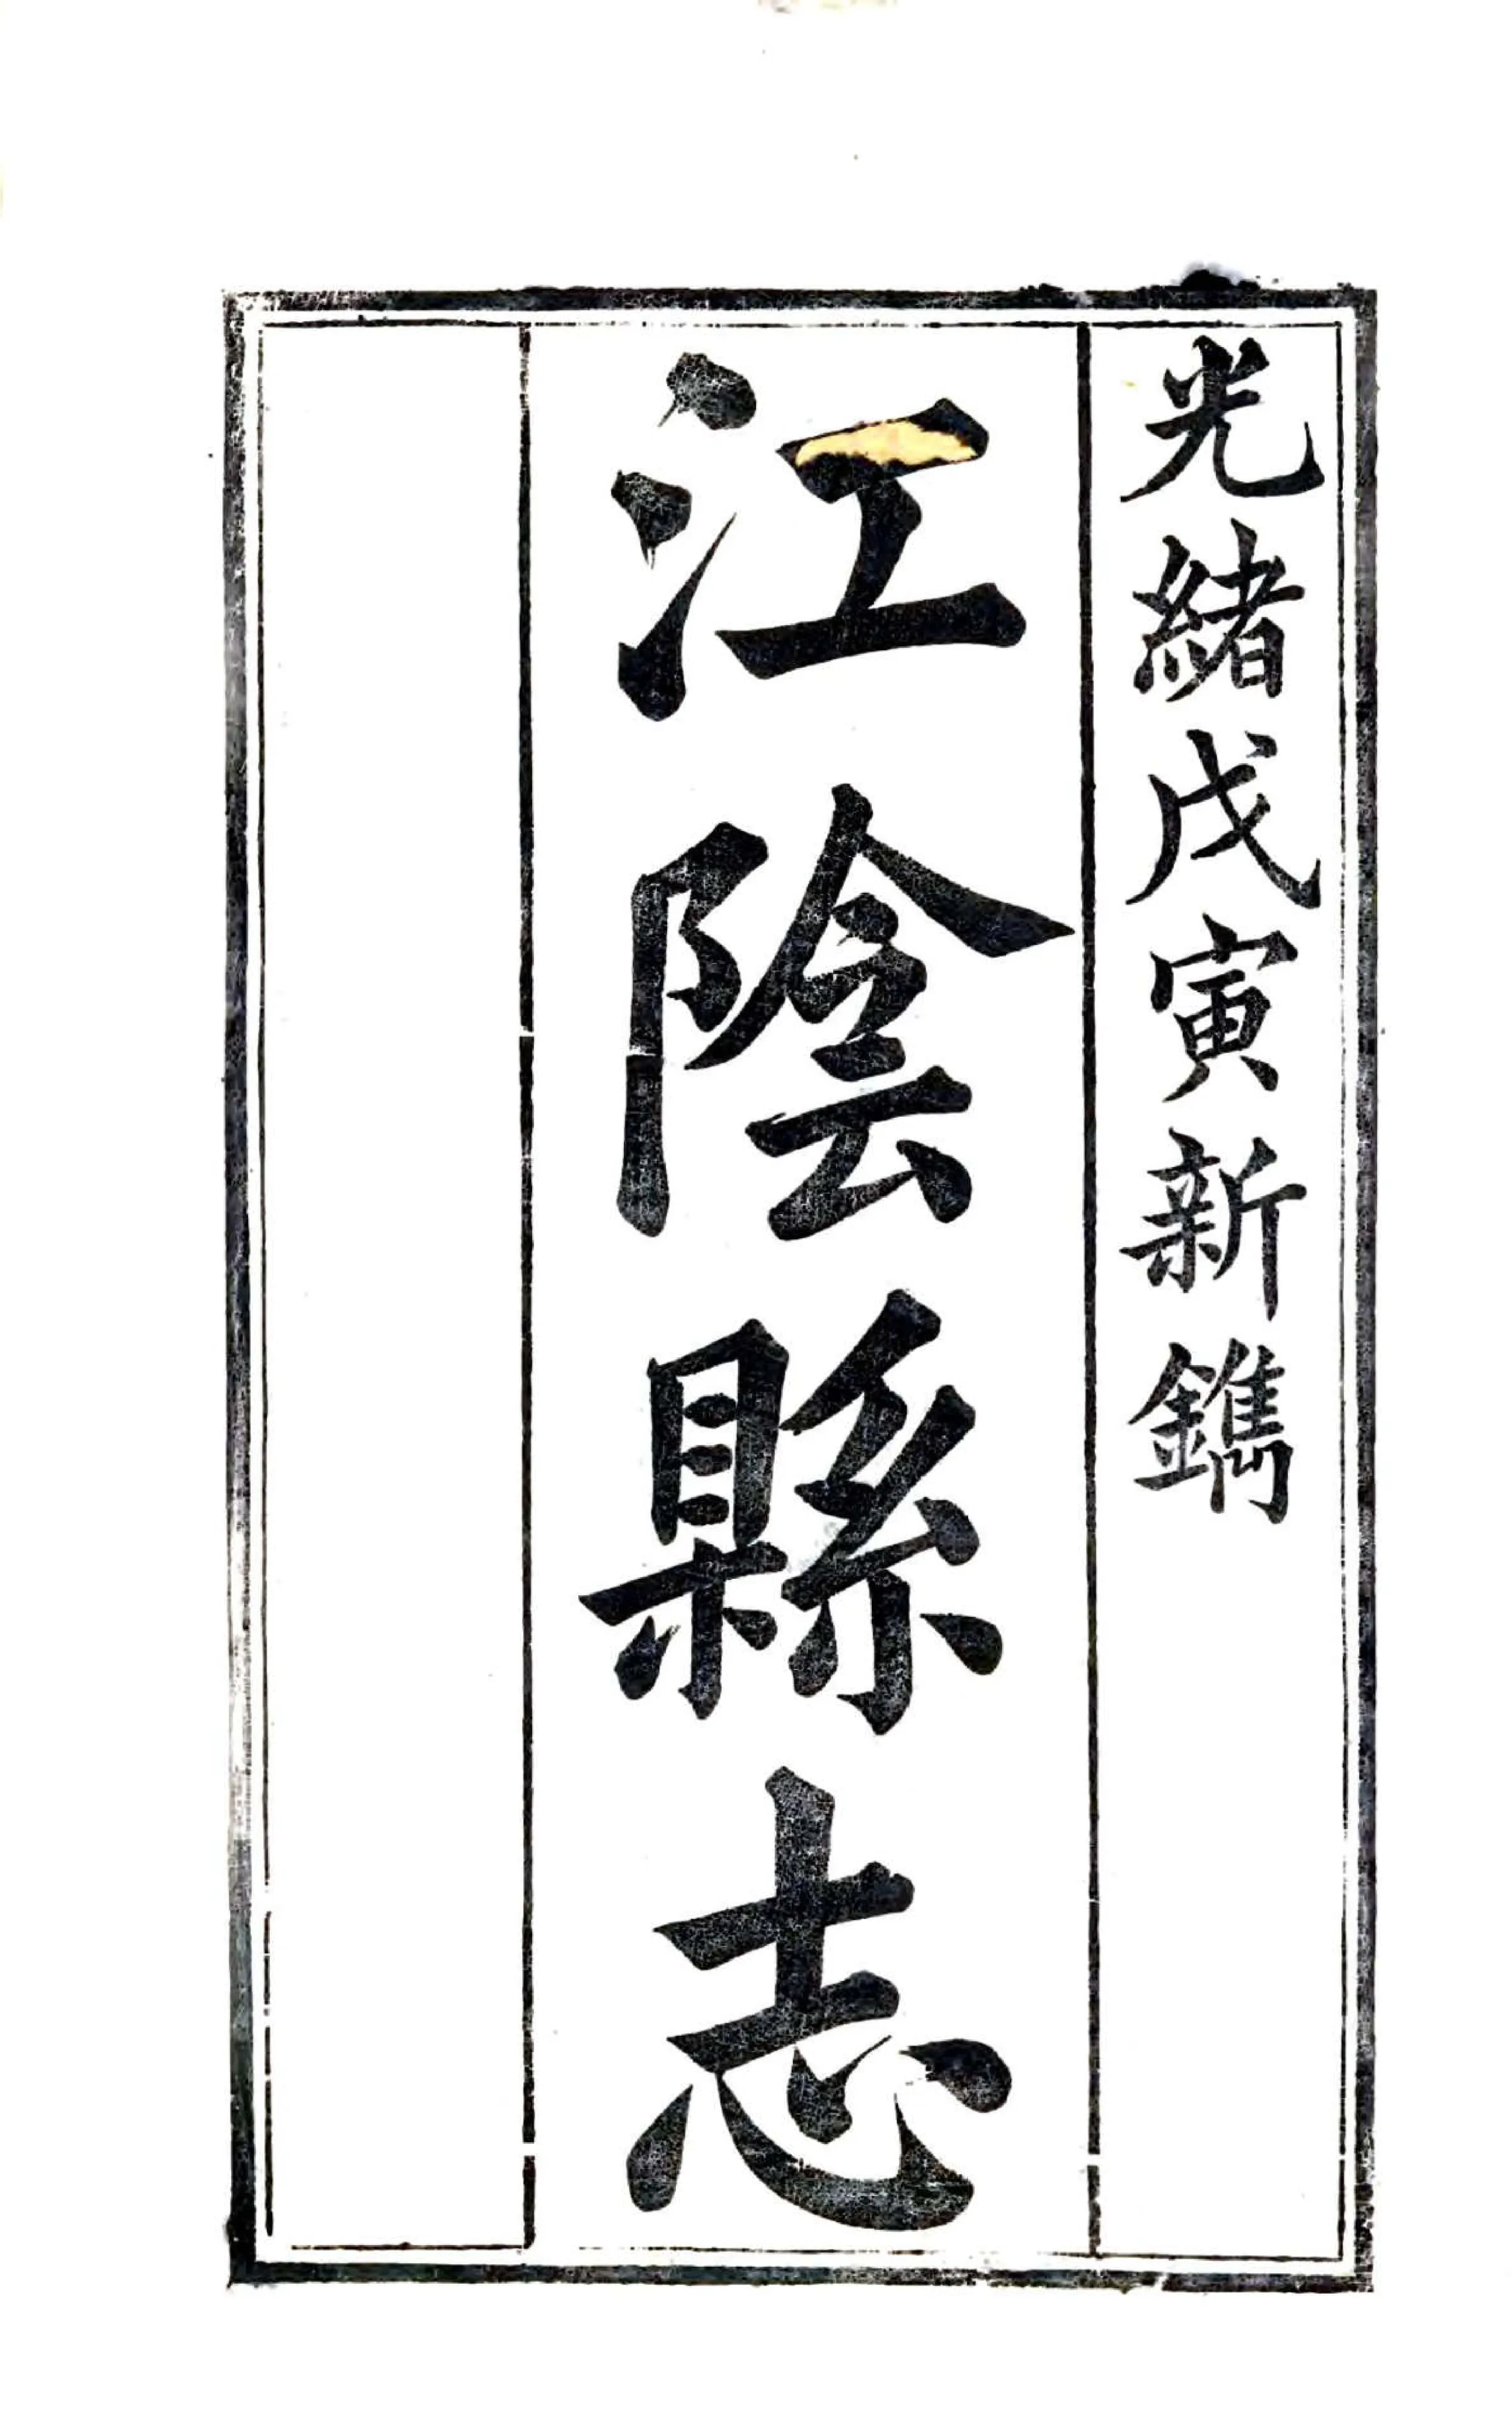 光緒戊寅新鐫
江陰縣志